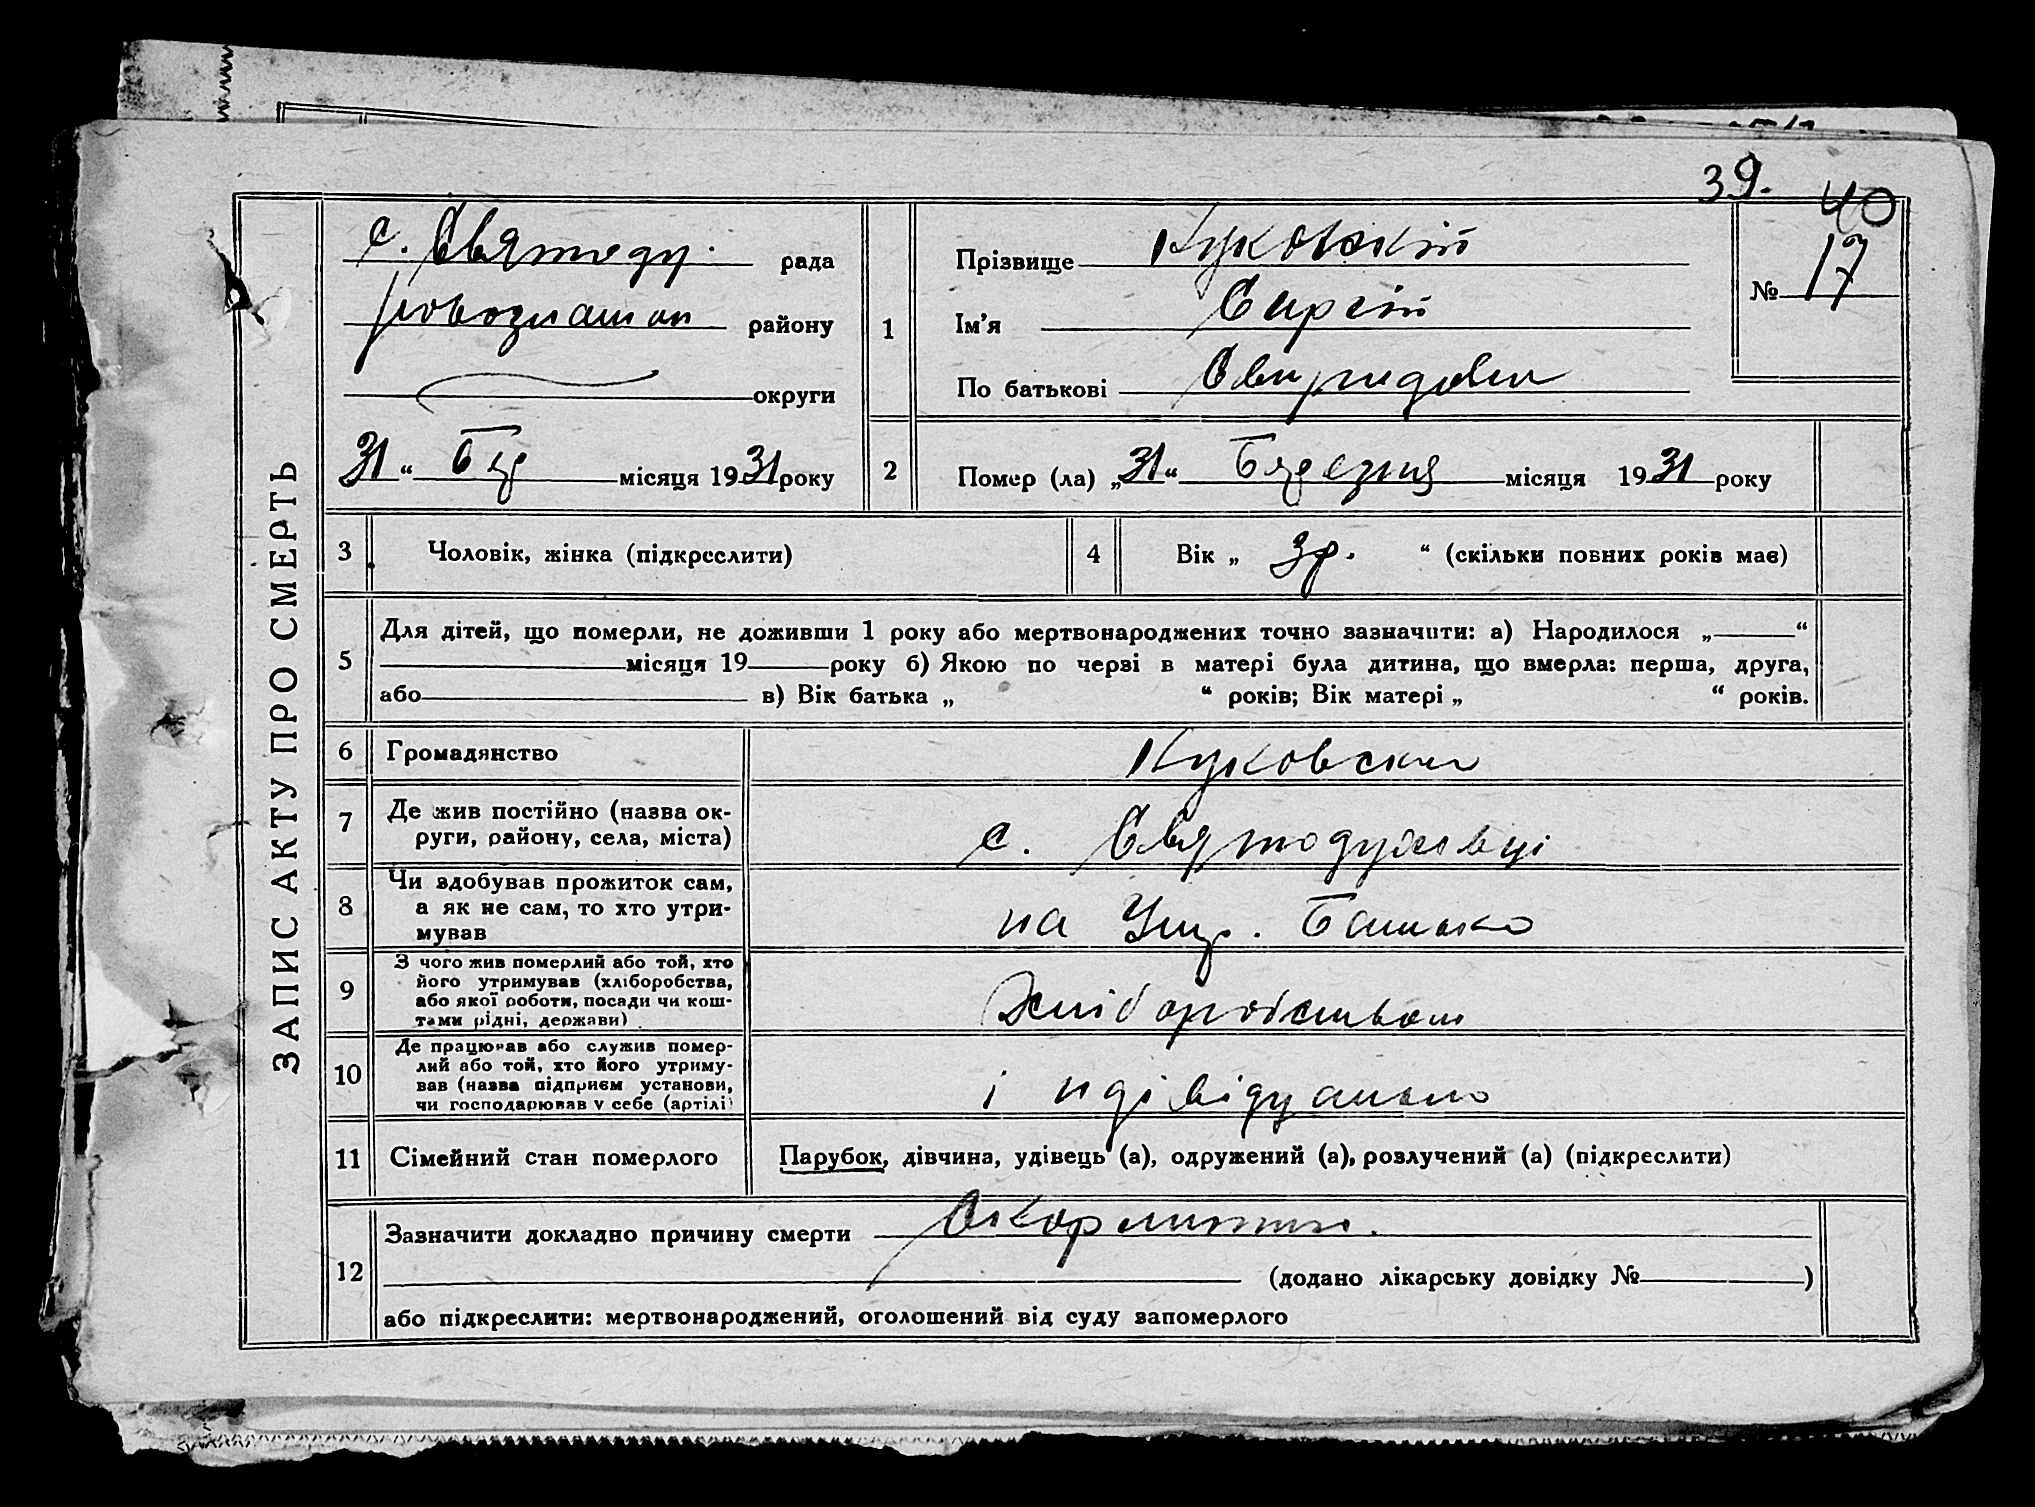 39. 40
ЗАПИС АКТУ ПРО СМЕРТЬ
с. Святоду. рада
району
округи
31 " Бер місяця 1931 року
1
Прізвище Куковский
Ім'я Сиргій
По батькові Свиридови
№ 17
2 Помер (ла) „31" Березня місяця 1931 року
3 Чоловік, жінка (підкреслити)
4 Вік „ 3 р. " (скільки повних років має)
5 Для дітей, що померли, не доживши 1 року або мертвонароджених точно зазначити: а) Народилося „ "
місяця 19 року б) Якою по черзі в матері була дитина, що вмерла: перша, друга,
або в) Вік батька „ " років; Вік матері „ " років.
6 Громадянство Куковский
7 Де жив постійно (назва ок-
руги, району, села, міста)
с. Святодуховці
8 Чи здобував прожиток сам,
а як не сам, то хто утри-
мував
на Утр. Батька
9 З чого жив померлий або той, хто
його утримував (хліборобства,
або якої роботи, посади чи кош-
тами рідні, держави)
Хліборобством
10 Де працював або служив помер-
лий або той, хто його утриму-
вав (назва підприєм установи,
чи господарював у себе (артілі)
індівідуально
11 Сімейний стан померлого Парубок, дівчина, удівець (а), одружений (а), розлучений (а) (підкреслити)
12 Зазначити докладно причину смерти
(додано лікарську довідку № )
або підкреслити: мертвонароджений, оголошений від суду запомерлого